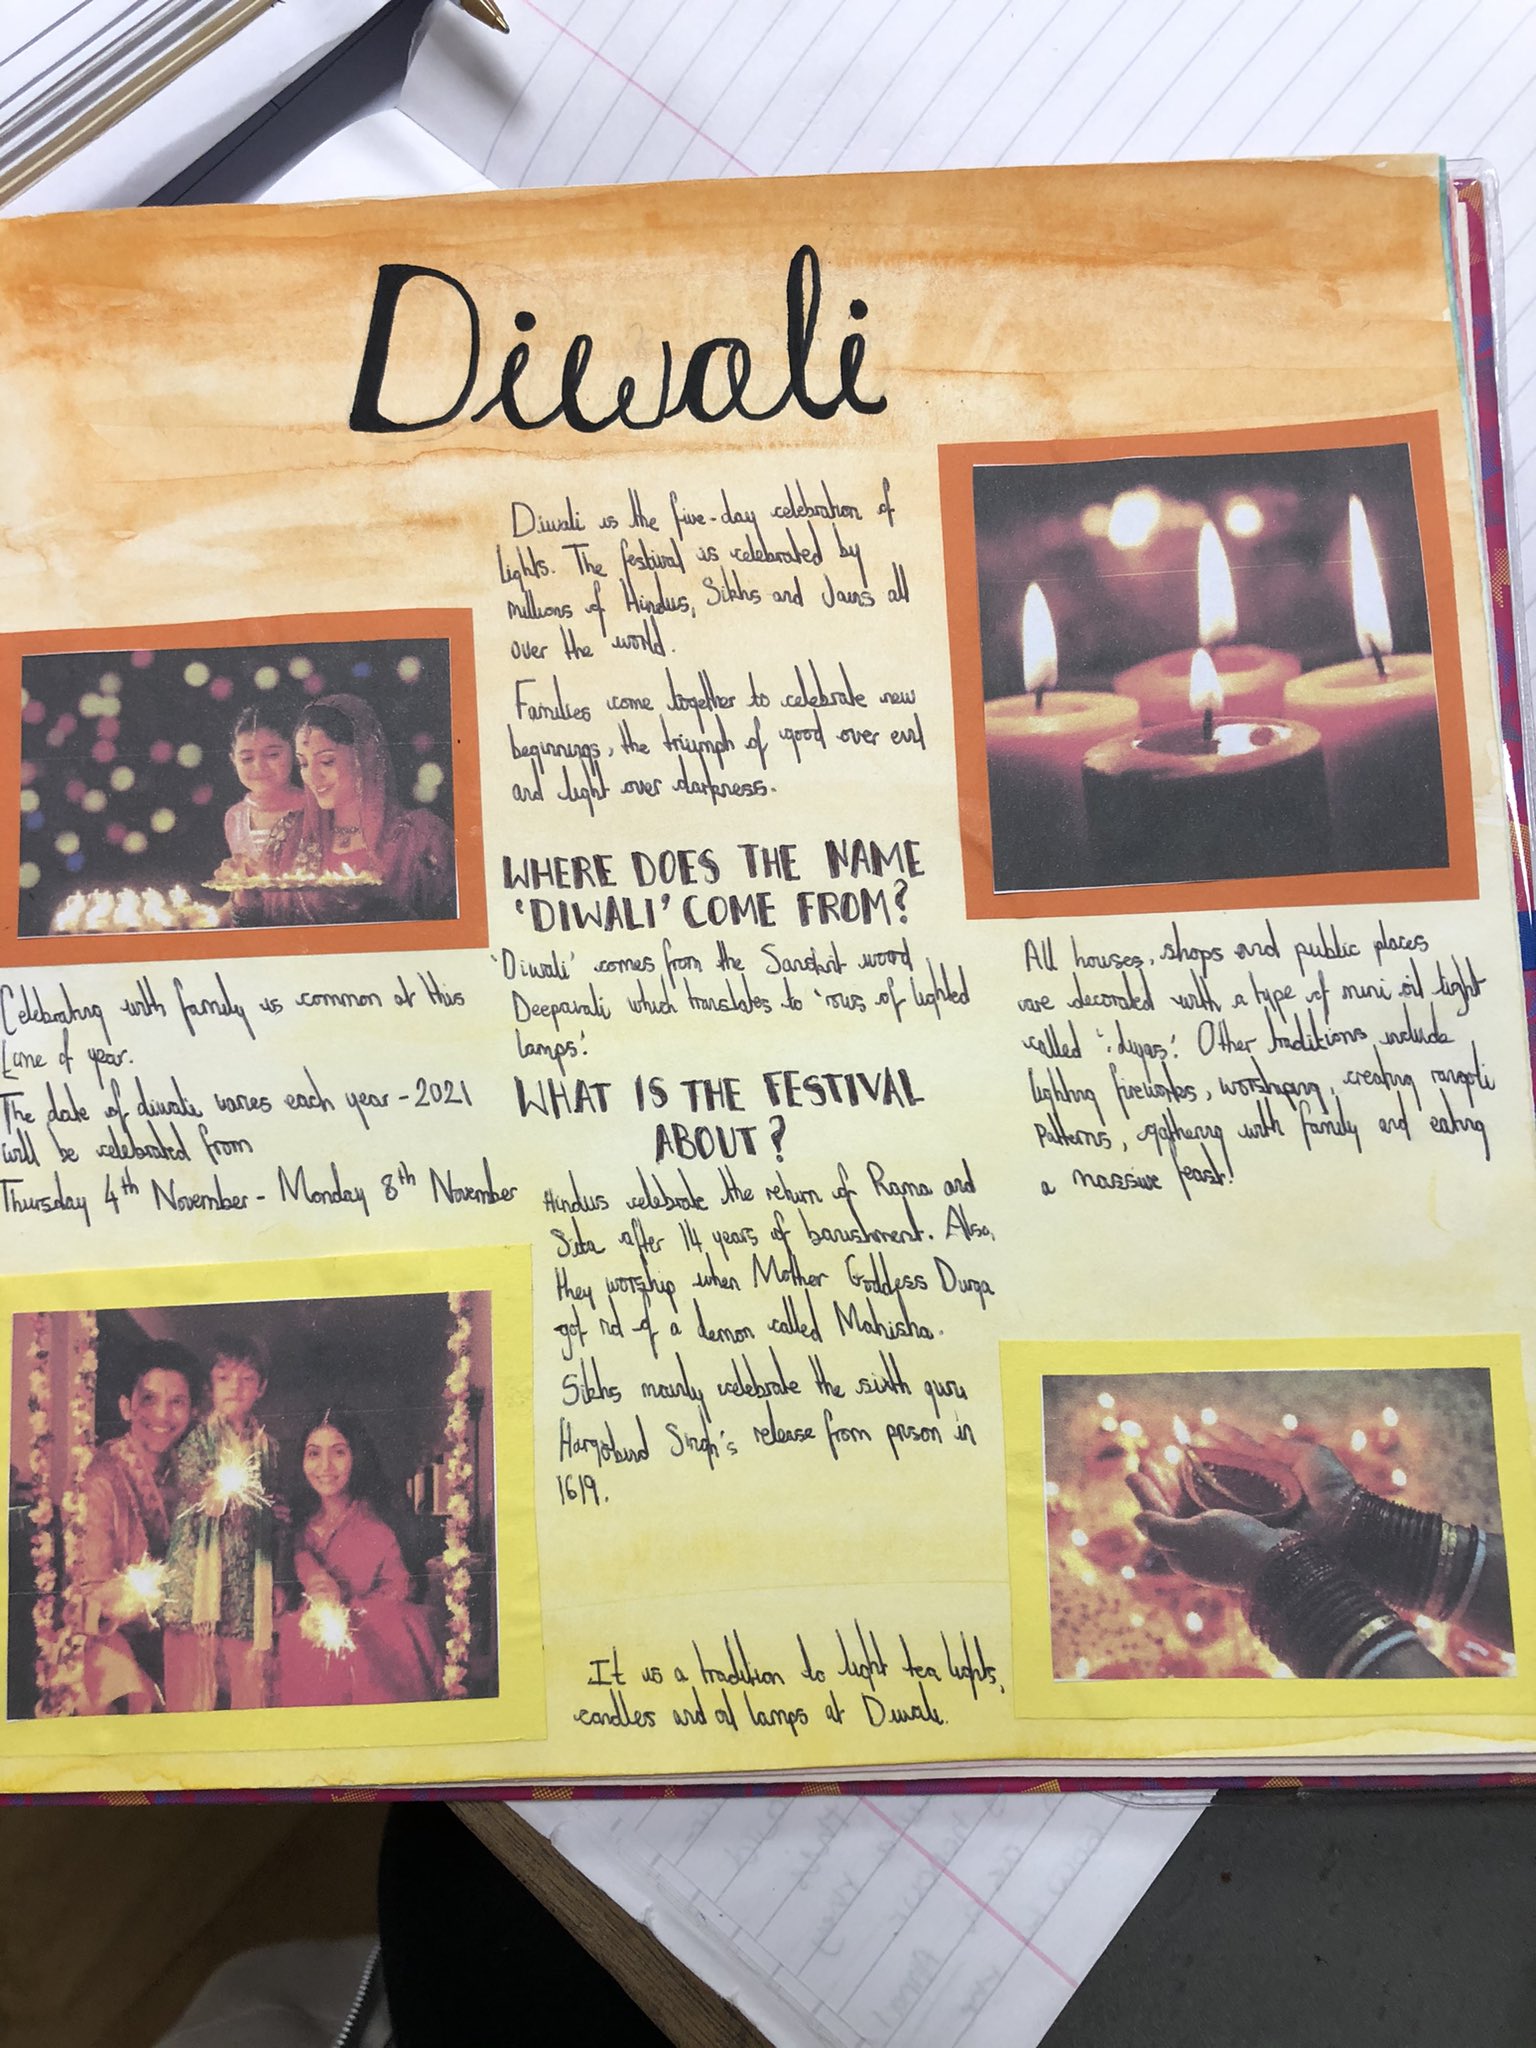 Diwali
Diwali is the five-day celebration of
lights. The festival is celebrated by
millions of Hindus, Sikhs and Jains all
over the world.
Families come together to celebrate new
beginnings, the triumph of good over evil
and light over darkness.
WHERE DOES THE NAME
'DIWALI' COME FROM?
'Diwali' comes from the Sanskrit word
Deepavali which translates to 'rows of lighted
lamps'.
WHAT IS THE FESTIVAL
ABOUT?
Hindus celebrate the return of Rama and
Sita after 14 years of banishment. Also,
they worship when Mother Goddess Durga
got rid of a demon called Mahisha.
Sikhs mainly celebrate the sixth guru
Hargobind Singh's release from prison in
1619.
It is a tradition to light tea lights,
candles and oil lamps at Diwali.
Celebrating with family is common at this
time of year.
The date of diwali varies each year - 2021
will be celebrated from
Thursday 4th November - Monday 8th November
All houses, shops and public places
are decorated with a type of mini oil light
called 'diyas'. Other traditions include
lighting fireworks, worshiping, creating rangoli
patterns, gathering with family and eating
a massive feast!